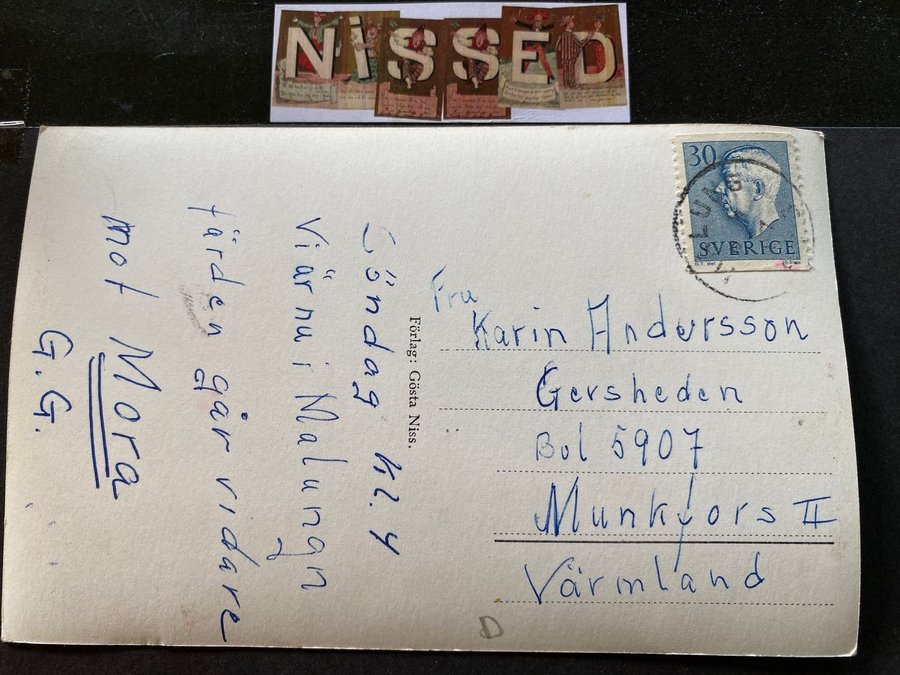 NiSSED
30
LUNG
SVERIGE
Söndag kl. 4
Vi är nu i Malungn
färden går vidare
mot Mora
G. G.
Förlag: Gösta Niss.
Fru
Karin Andersson
Gersheden
Bol 5907
Munkfors II
Värmland
D